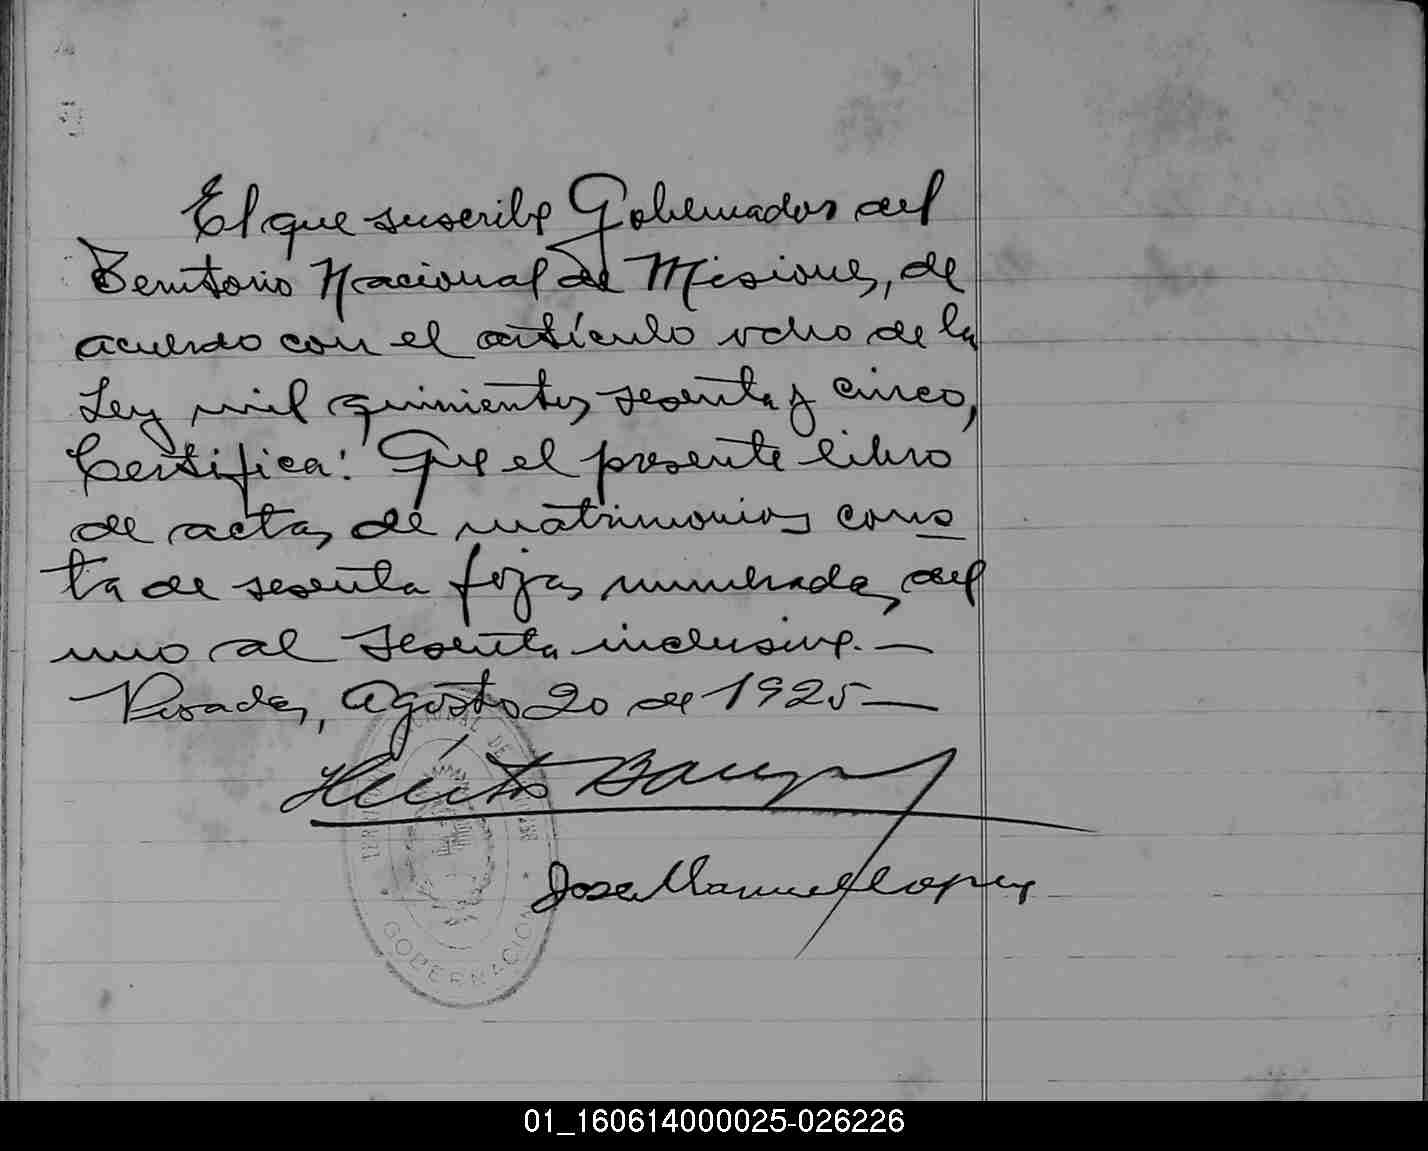 El que suscribe Gobernador del
Territorio Nacional de Misiones, de
acuerdo con el artículo ocho de la
Ley mil quinientos sesenta y cinco,
Certifica: Que el presente libro
de actas de matrimonios cons
ta de sesenta fojas numeradas del
uno al sesenta inclusive.—
Posadas, Agosto 20 de 1925—
Héctor Barreyro
José Manuel Lopez
GOBERNACION
01_160614000025-026226